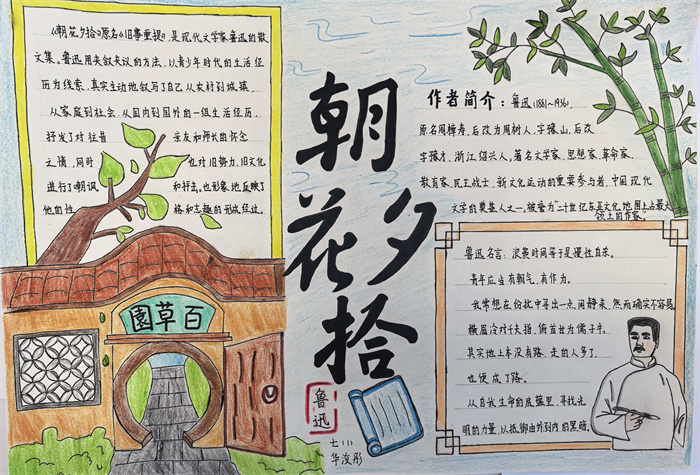 《朝花夕拾》原名《旧事重提》,是现代文学家鲁迅的散
文集。鲁迅用夹叙夹议的方法,以青少年时代的生活经
历为线索,真实生动地叙写了自己从农村到城镇,
从家庭到社会,从国内到国外的一组生活经历,
抒发了对往昔 亲友和师长的怀念
之情,同时 也对旧势力、旧文化
进行了嘲讽 和抨击。也形象地反映了
他的性 格和志趣的形成经过。
百草園
朝花夕拾
鲁迅
七(1)
华浚彤
作者简介:鲁迅(1881~1936),
原名周樟寿,后改为周树人,字豫山,后改
字豫才,浙江绍兴人,著名文学家、思想家、革命家、
教育家、民主战士,新文化运动的重要参与者,中国现代
文学的奠基人之一,被誉为“二十世纪东亚文化地图上占最大
领土的作家”。
鲁迅名言:浪费时间等于是慢性自杀。
青年应当有朝气,有作为。
我常想在纷扰中寻出一点闲静来,然而确实不容易。
横眉冷对千夫指,俯首甘为儒子牛。
其实地上本没有路,走的人多了,
也便成了路。
从自我生命的底蕴里,寻找光
明的力量,以抵御由外到内的黑暗。